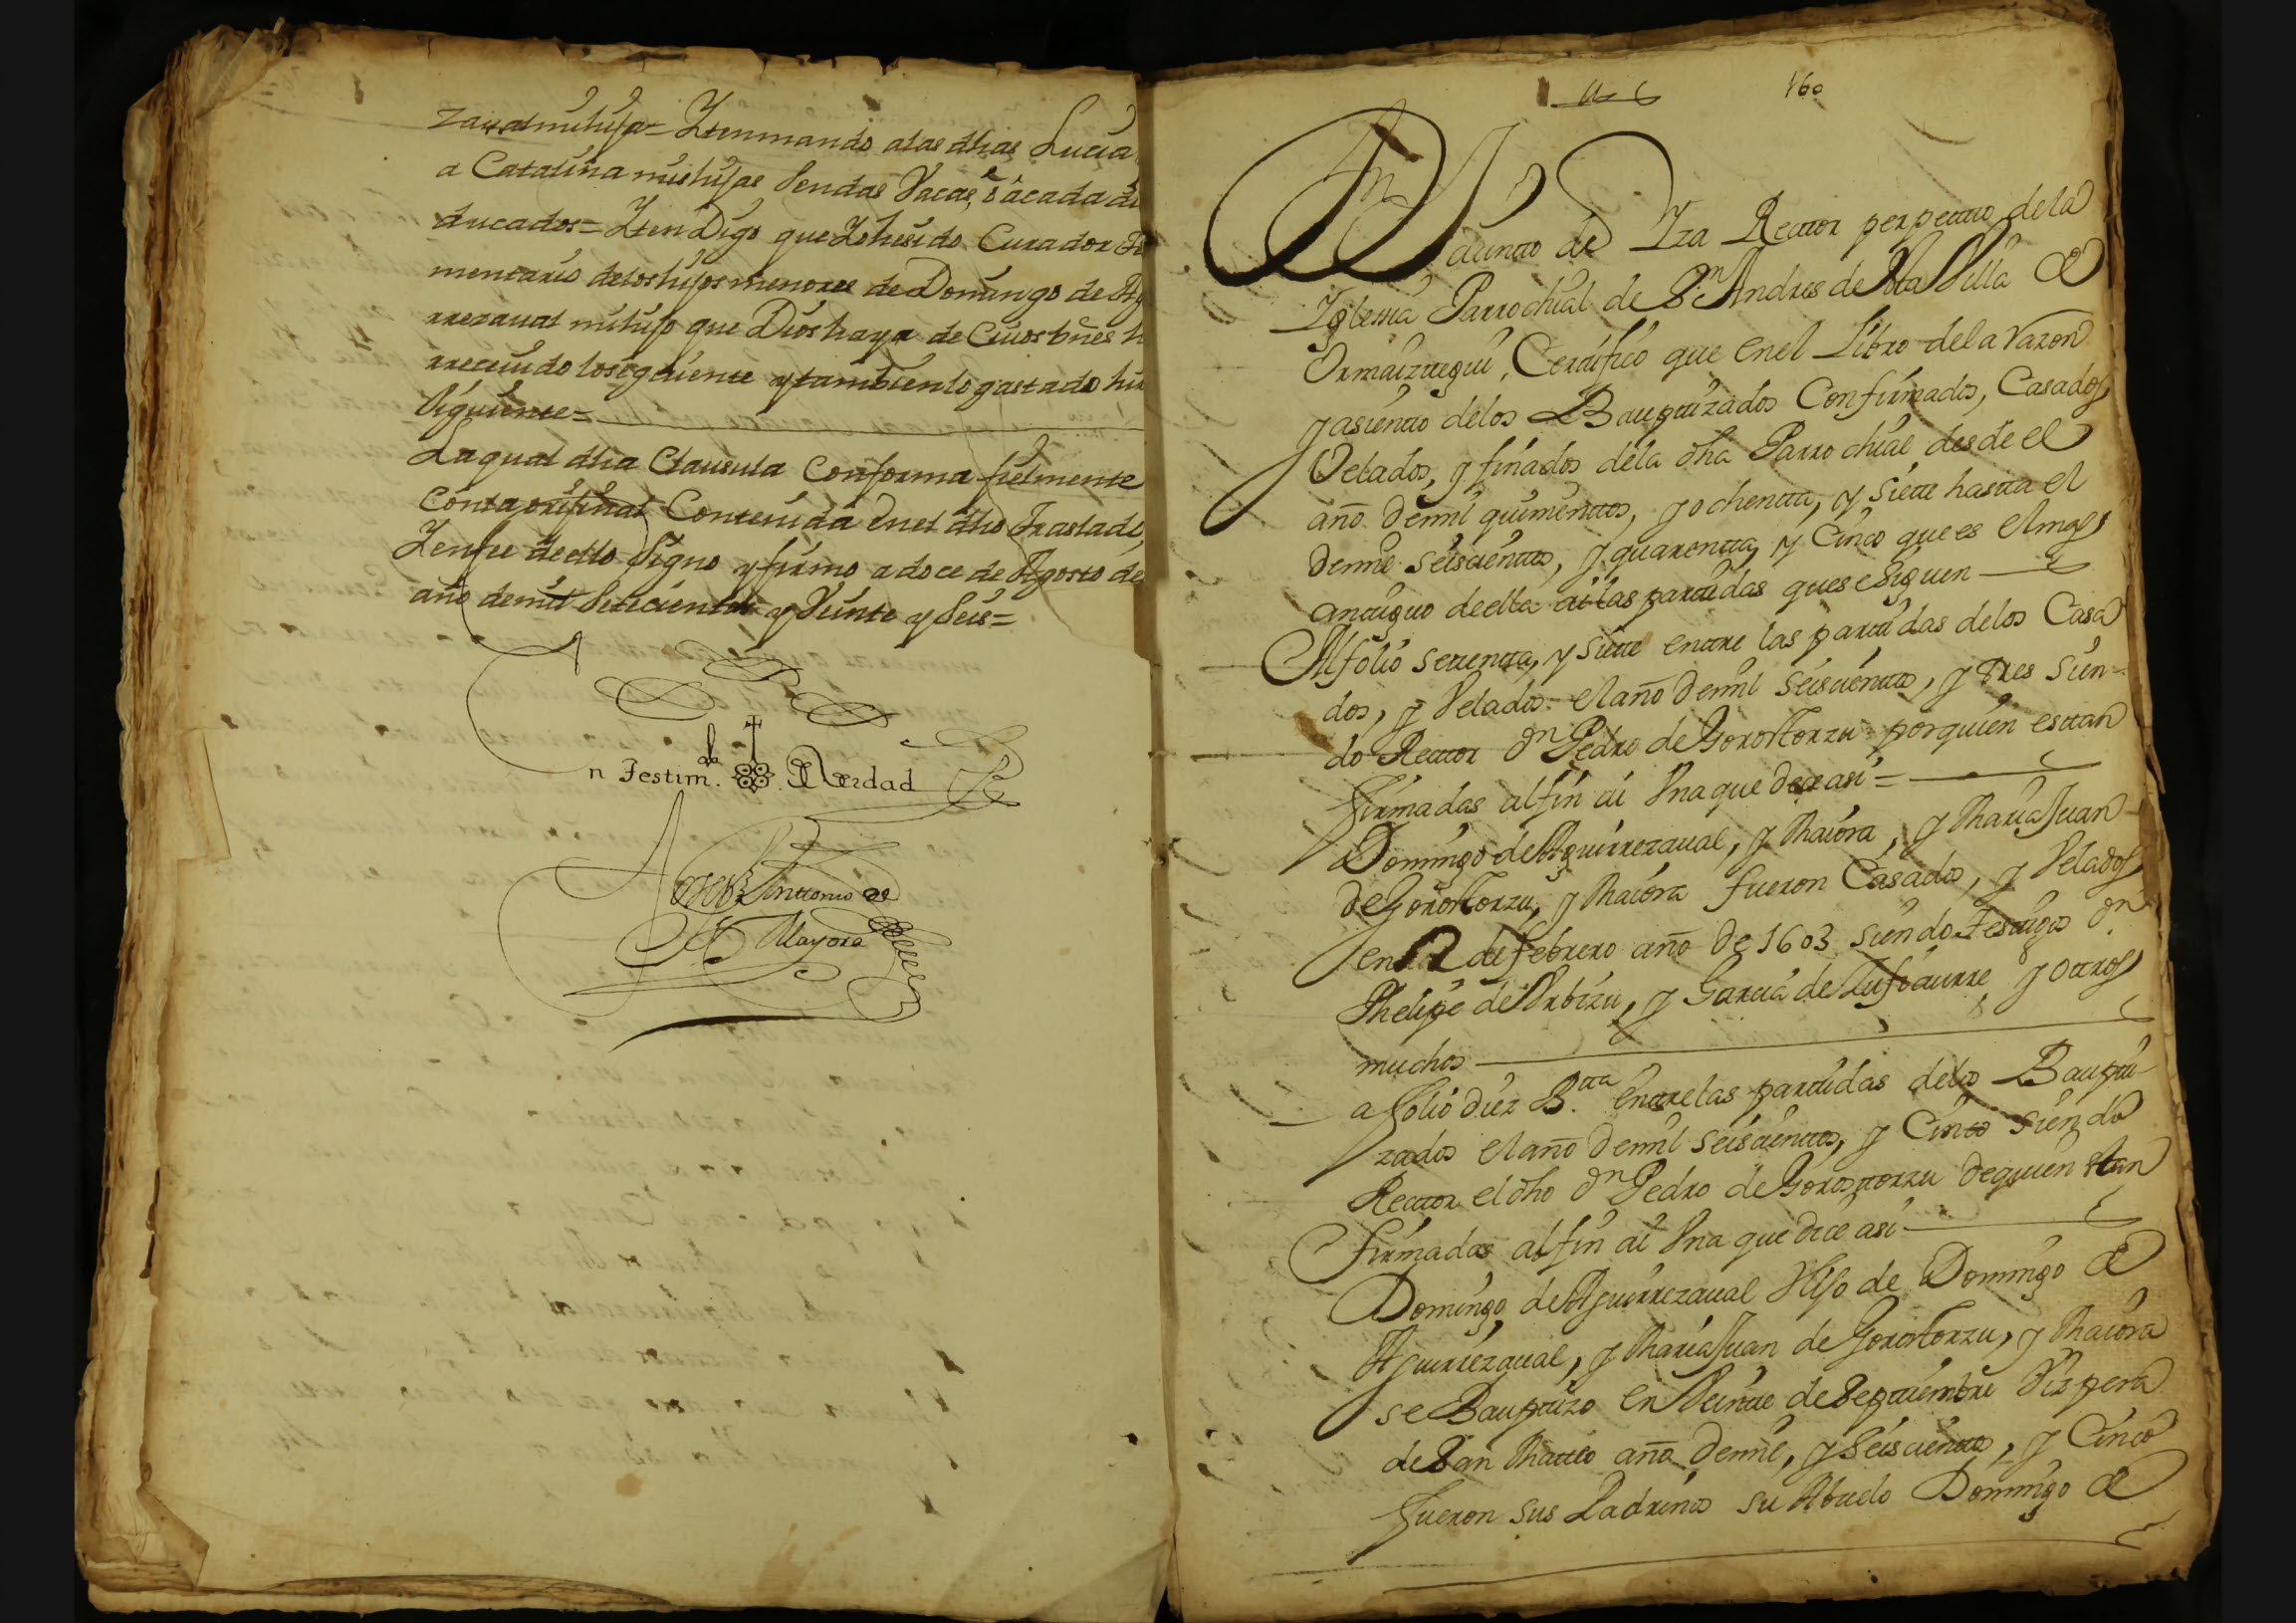 zaval mi hija = Iten mando a las dhas Lucia
a Catalina mis hijas sendas Vacas, ô â cada di
ducados = Iten Digo que Yo he sido Curador
mentario de los hijos menores de Domingo de Ag
rrezaval mi hijo que Dios haya de Cuios bñes h
rrecivido lo siguiente y tambien lo gastado
siguiente =
La qual dha Clausula Conforma fielmente
con la original Contenida en el dho Traslado,
Y en fee de ello signo y firmo a doce de Agosto de
año de mil setecientos y Veinte y seis =
n Testim.do de Verdad
Antonio de
Mayora
160
Dn
de Yza Rector perpetuo de la
Iglesia Parrochial de Sn Andres de esta Villa de
Ormaiztegui, Certifico que en el Libro de la razon
y asiento de los Bauptizados Confirmados, Casados
Velados, y finados de la dha Parrochial desde el
año de mil quinientos, y ochenta, y siete hasta el
de mil seiscientos, y quarenta, y Cinco que es el mas
antiguo de ella ai las partidas que se siguen
Al folio setenta, y siete entre las partidas de los Casa
dos, y Velados el año de mil seiscientos, y tres sien-
do Rector Dn Pedro de Gorostorzu por quien estan
firmadas al fin ai Vna que dice asi =
Domingo de Aguirrezaual, y Maiora, y Maria Juan
de Gorostorzu, y Maiora fueron Casados, y Velados
en 12 de febrero año de 1603 siendo Testigos Dn
Phelipe de Vrbizu, y Garcia de y otros
muchos
a folio diez B.tta entre las partidas de los Baupti-
zados el año de mil seiscientos, y Cinco siendo
Rector el dho Dn Pedro de Gorostorzu de quien stan
firmadas al fin ai Vna que dice asi
Domingo de Aguirrezaual Hijo de Domingo de
Aguirrezaual, y Maria Juan de Gorostorzu, y Maiora
se Bauptizo en Veinte de Septiembre Vizpera
de San Matteo año de mil, y seiscientos, y Cinco
fueron sus Padrinos su Abuelo Domingo de